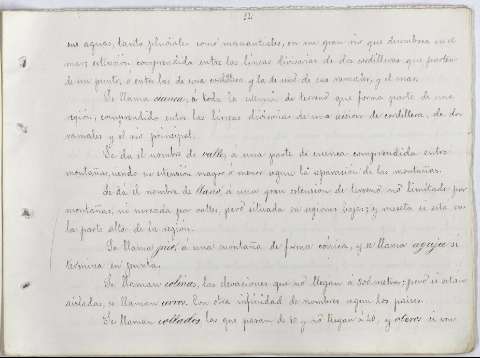 32
sus aguas, tanto pluviales como manantiales, en un gran rio que desemboca en el
mar; estension comprendida entre las lineas divisorias de dos cordilleras que parten
de un punto, o entre las de una cordillera y la de uno de sus ramales, y el mar.
Se llama cuenca, á toda la estension de terreno que forma parte de una
region, comprendida entre las lineas divisorias de una seccion de cordillera, de dos
ramales y el rio principal.
Se da el nombre de valle, á una parte de cuenca comprendida entre
montañas, siendo su estension mayor o menor segun la separacion de las montañas.
Se da el nombre de llano, a una gran estension de terreno no limitado por
montañas, ni cortada por valles, pero situada en regiones bajas; y meseta si esta en
la parte alta de la region.
Se llama pico, á una montaña de forma cónica, y se llama aguja si
termina en punta.
Se llaman colinas, las elevaciones que no llegan á 500 metros; pero si estan
aisladas, se llaman cerros. Con otra infinidad de nombres segun los paises.
Se llaman collados, las que pasan de 10 y no llegan á 20, y oteros si son